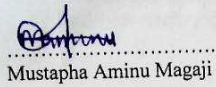 Mustapha Aminu Magaji